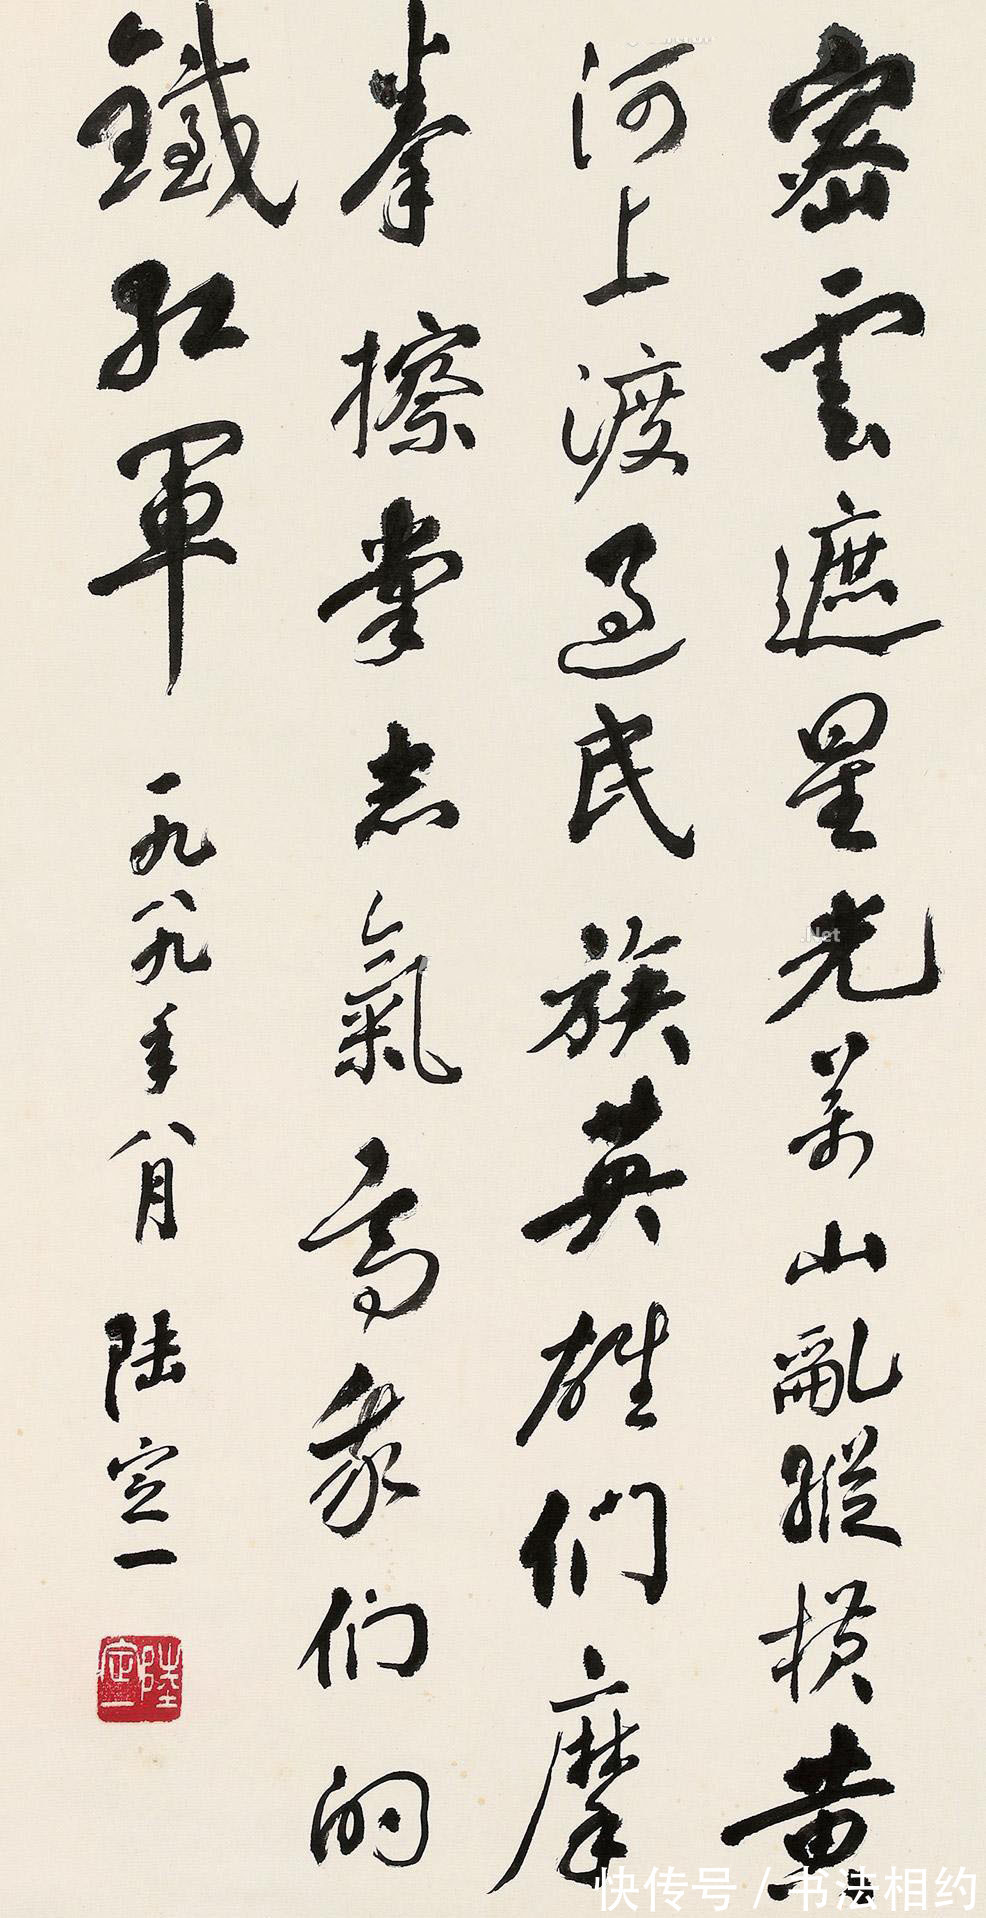 密雲遮星光萬山亂縱橫黃
河上渡過民族英雄們摩
拳擦掌志氣高我们的
鐵紅軍
一九八九年八月 陆定一
陸定一
.Net
快传号 / 书法相约